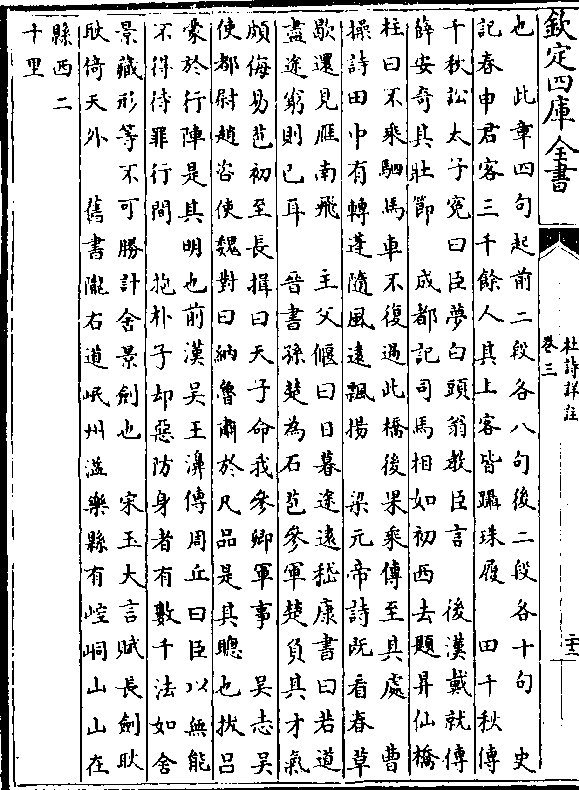 欽定四庫全書
杜詩詳註
卷三
二十一
也　此章四句起前二段各八句後二段各十句　史
記春申君客三千餘人其上客皆躡珠履　田千秋傳
千秋訟太子寃曰臣夢白頭翁教臣言　後漢戴就傳
薛安奇其壯節　成都記司馬相如初西去題昇仙橋
柱曰不乘駟馬車不復過此橋後果乘傳至其處　曹
操詩田中有轉蓬隨風遠飄揚　梁元帝詩既看春草
歇還見雁南飛　主父偃曰日暮途遠嵇康書曰若道
盡途窮則已耳　晉書孫楚為石苞參軍楚負其才氣
頗侮易苞初至長揖曰天子命我參卿軍事　吳志吳
使都尉趙咨使魏對曰納魯肅於凡品是其聰也拔呂
蒙於行陣是其明也前漢吳王濞傳周丘曰臣以無能
不得待罪行間　抱朴子却惡防身者有數千法如含
景藏形等不可勝計舍景劍也　宋玉大言賦長劍耿
耿倚天外　舊書隴右道岷州溢樂縣有崆峒山山在
縣西二
十里